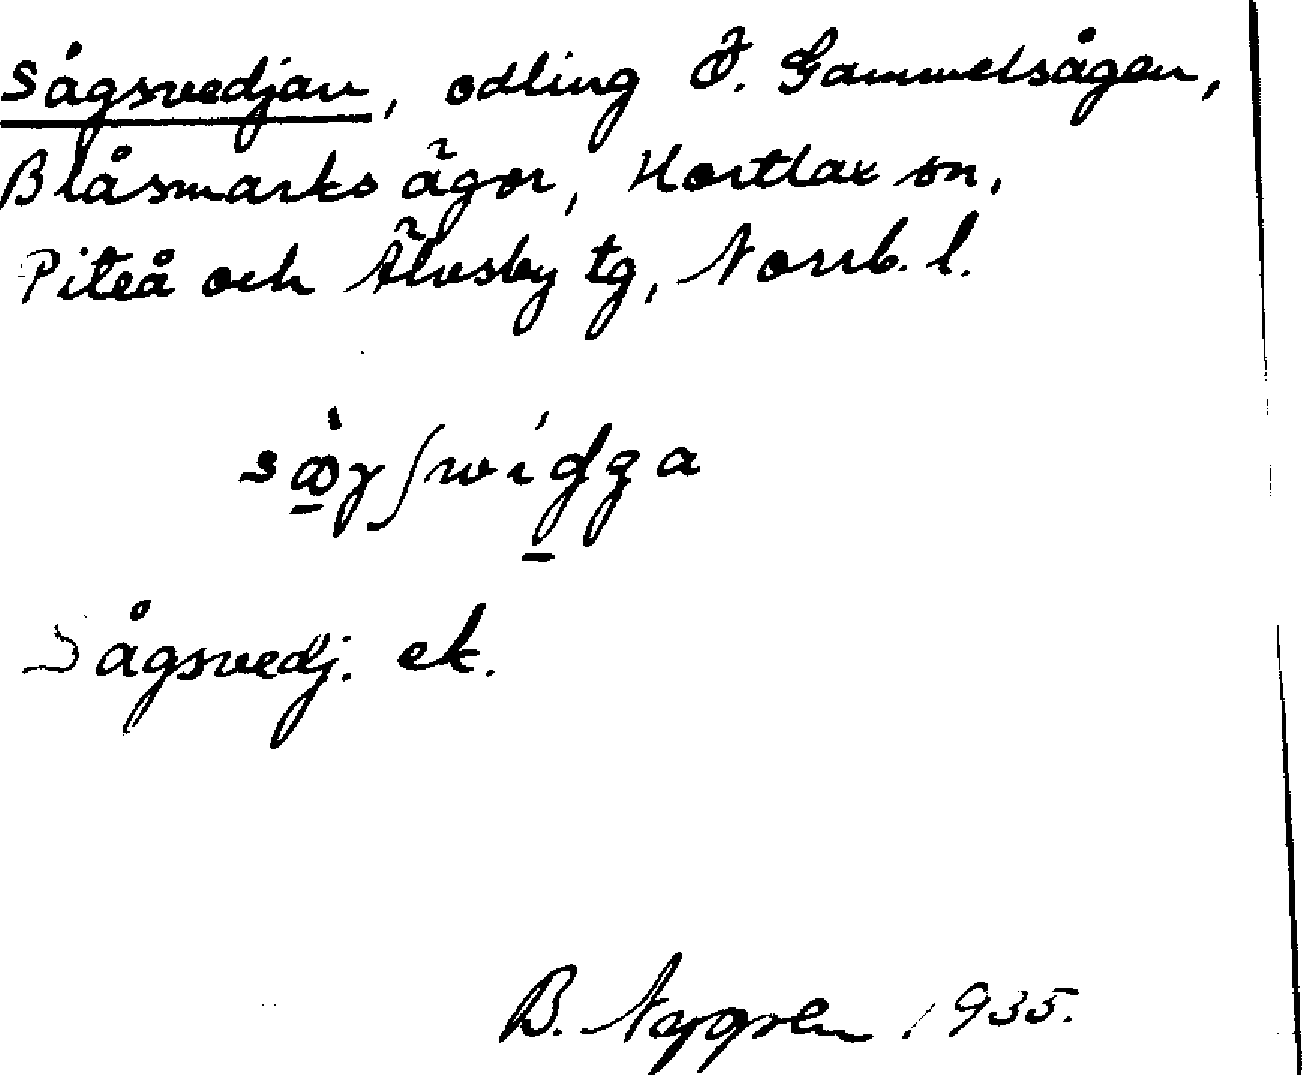 Sågsvedjan, odling Ö. Gammelsågen,
Blåsmarks ägor, Hortlax sn,
Piteå och Älvsby tg, Norrb. l.
Sågsvedj. ek.
B. Nygren 1935.